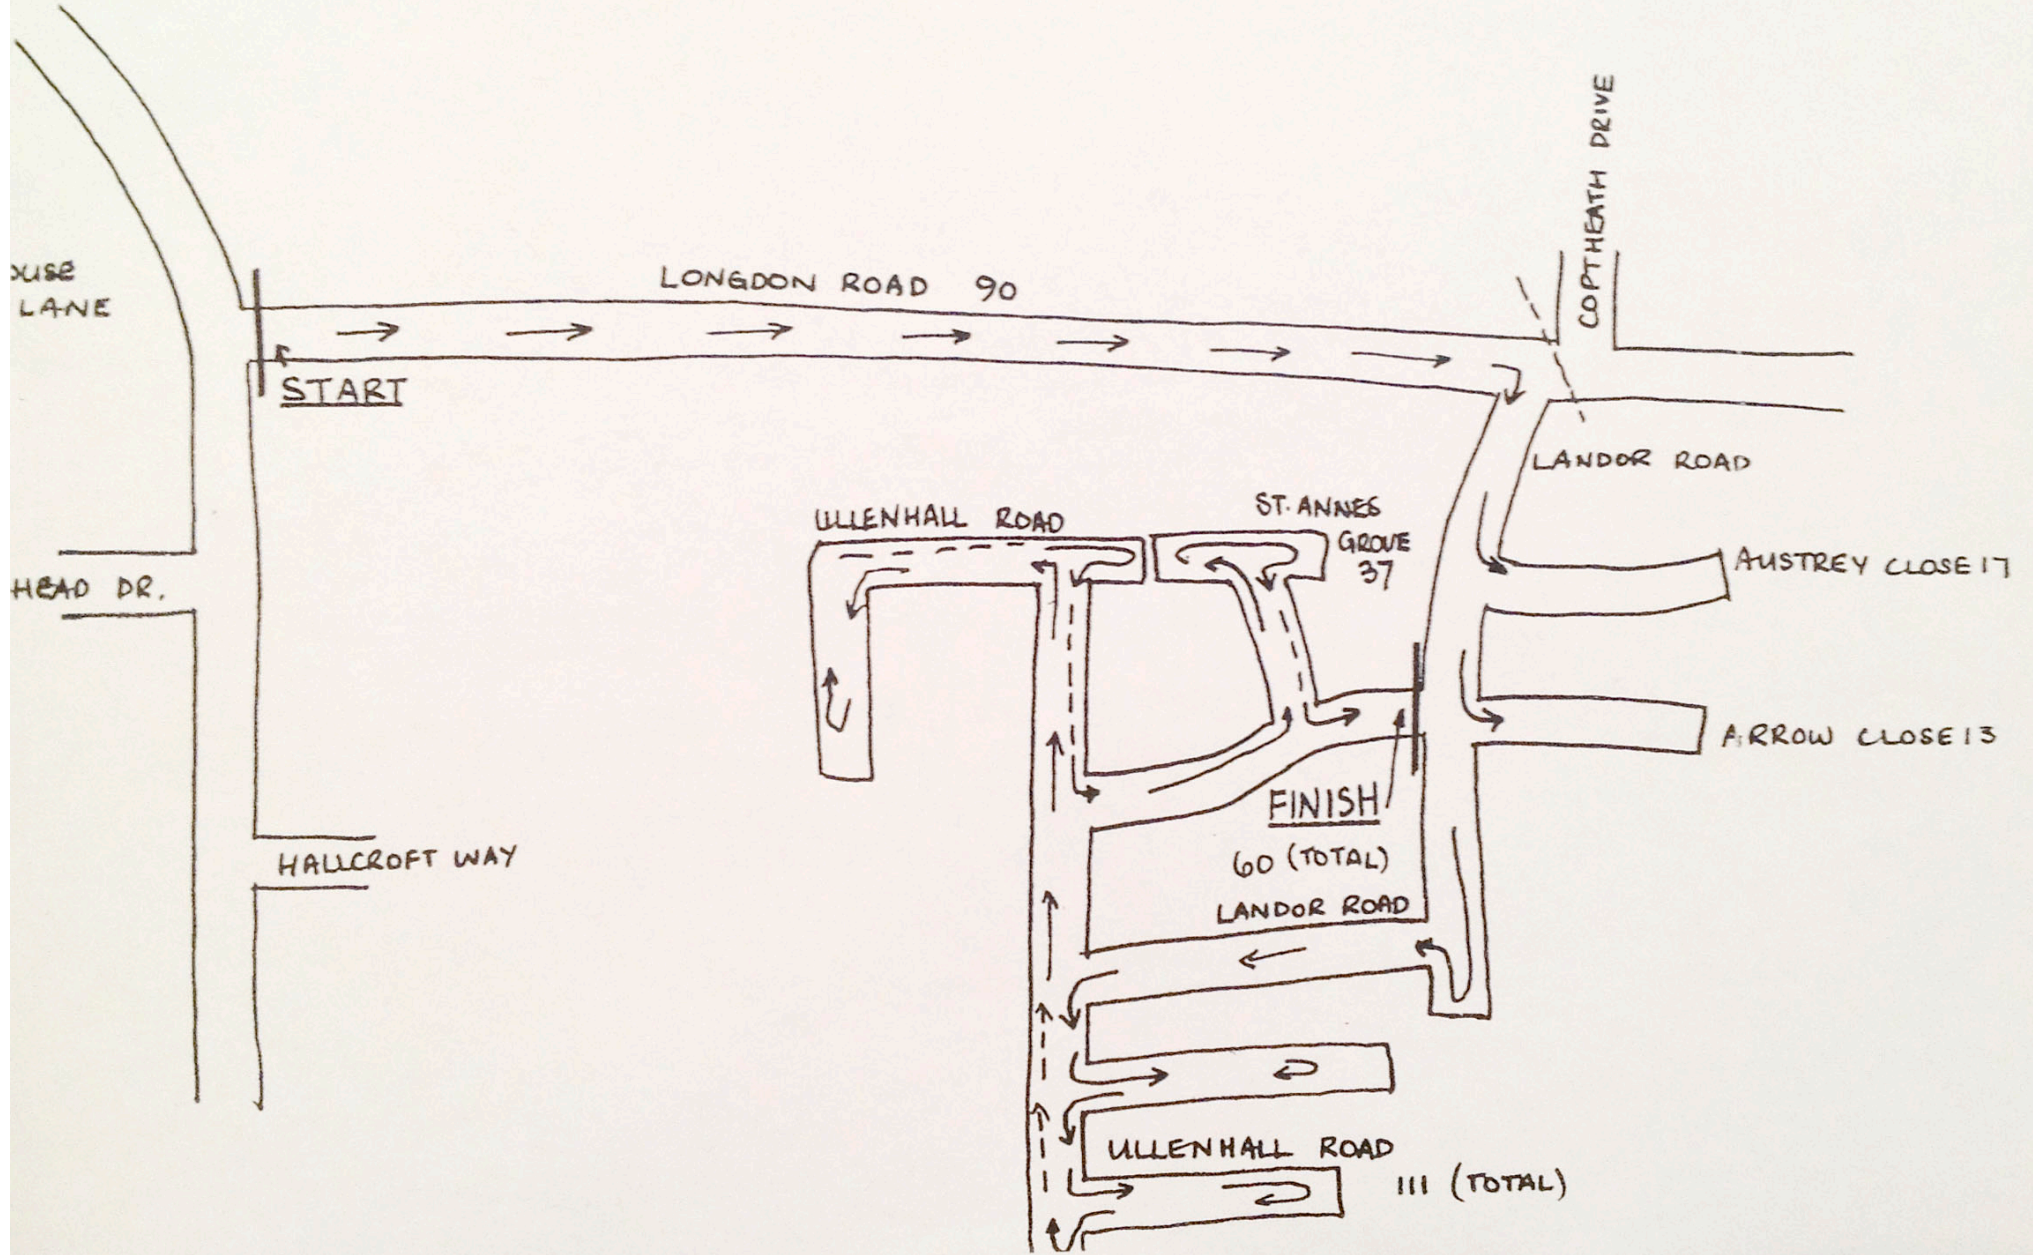 COPTHEATH DRIVE
LANE
LONGDON ROAD 90
START
LANDOR ROAD
ULLENHALL ROAD
ST. ANNES
GROVE
37
AUSTREY CLOSE 17
HEAD DR.
ARROW CLOSE 13
FINISH
HALLCROFT WAY
60 (TOTAL)
LANDOR ROAD
ULLENHALL ROAD
111 (TOTAL)